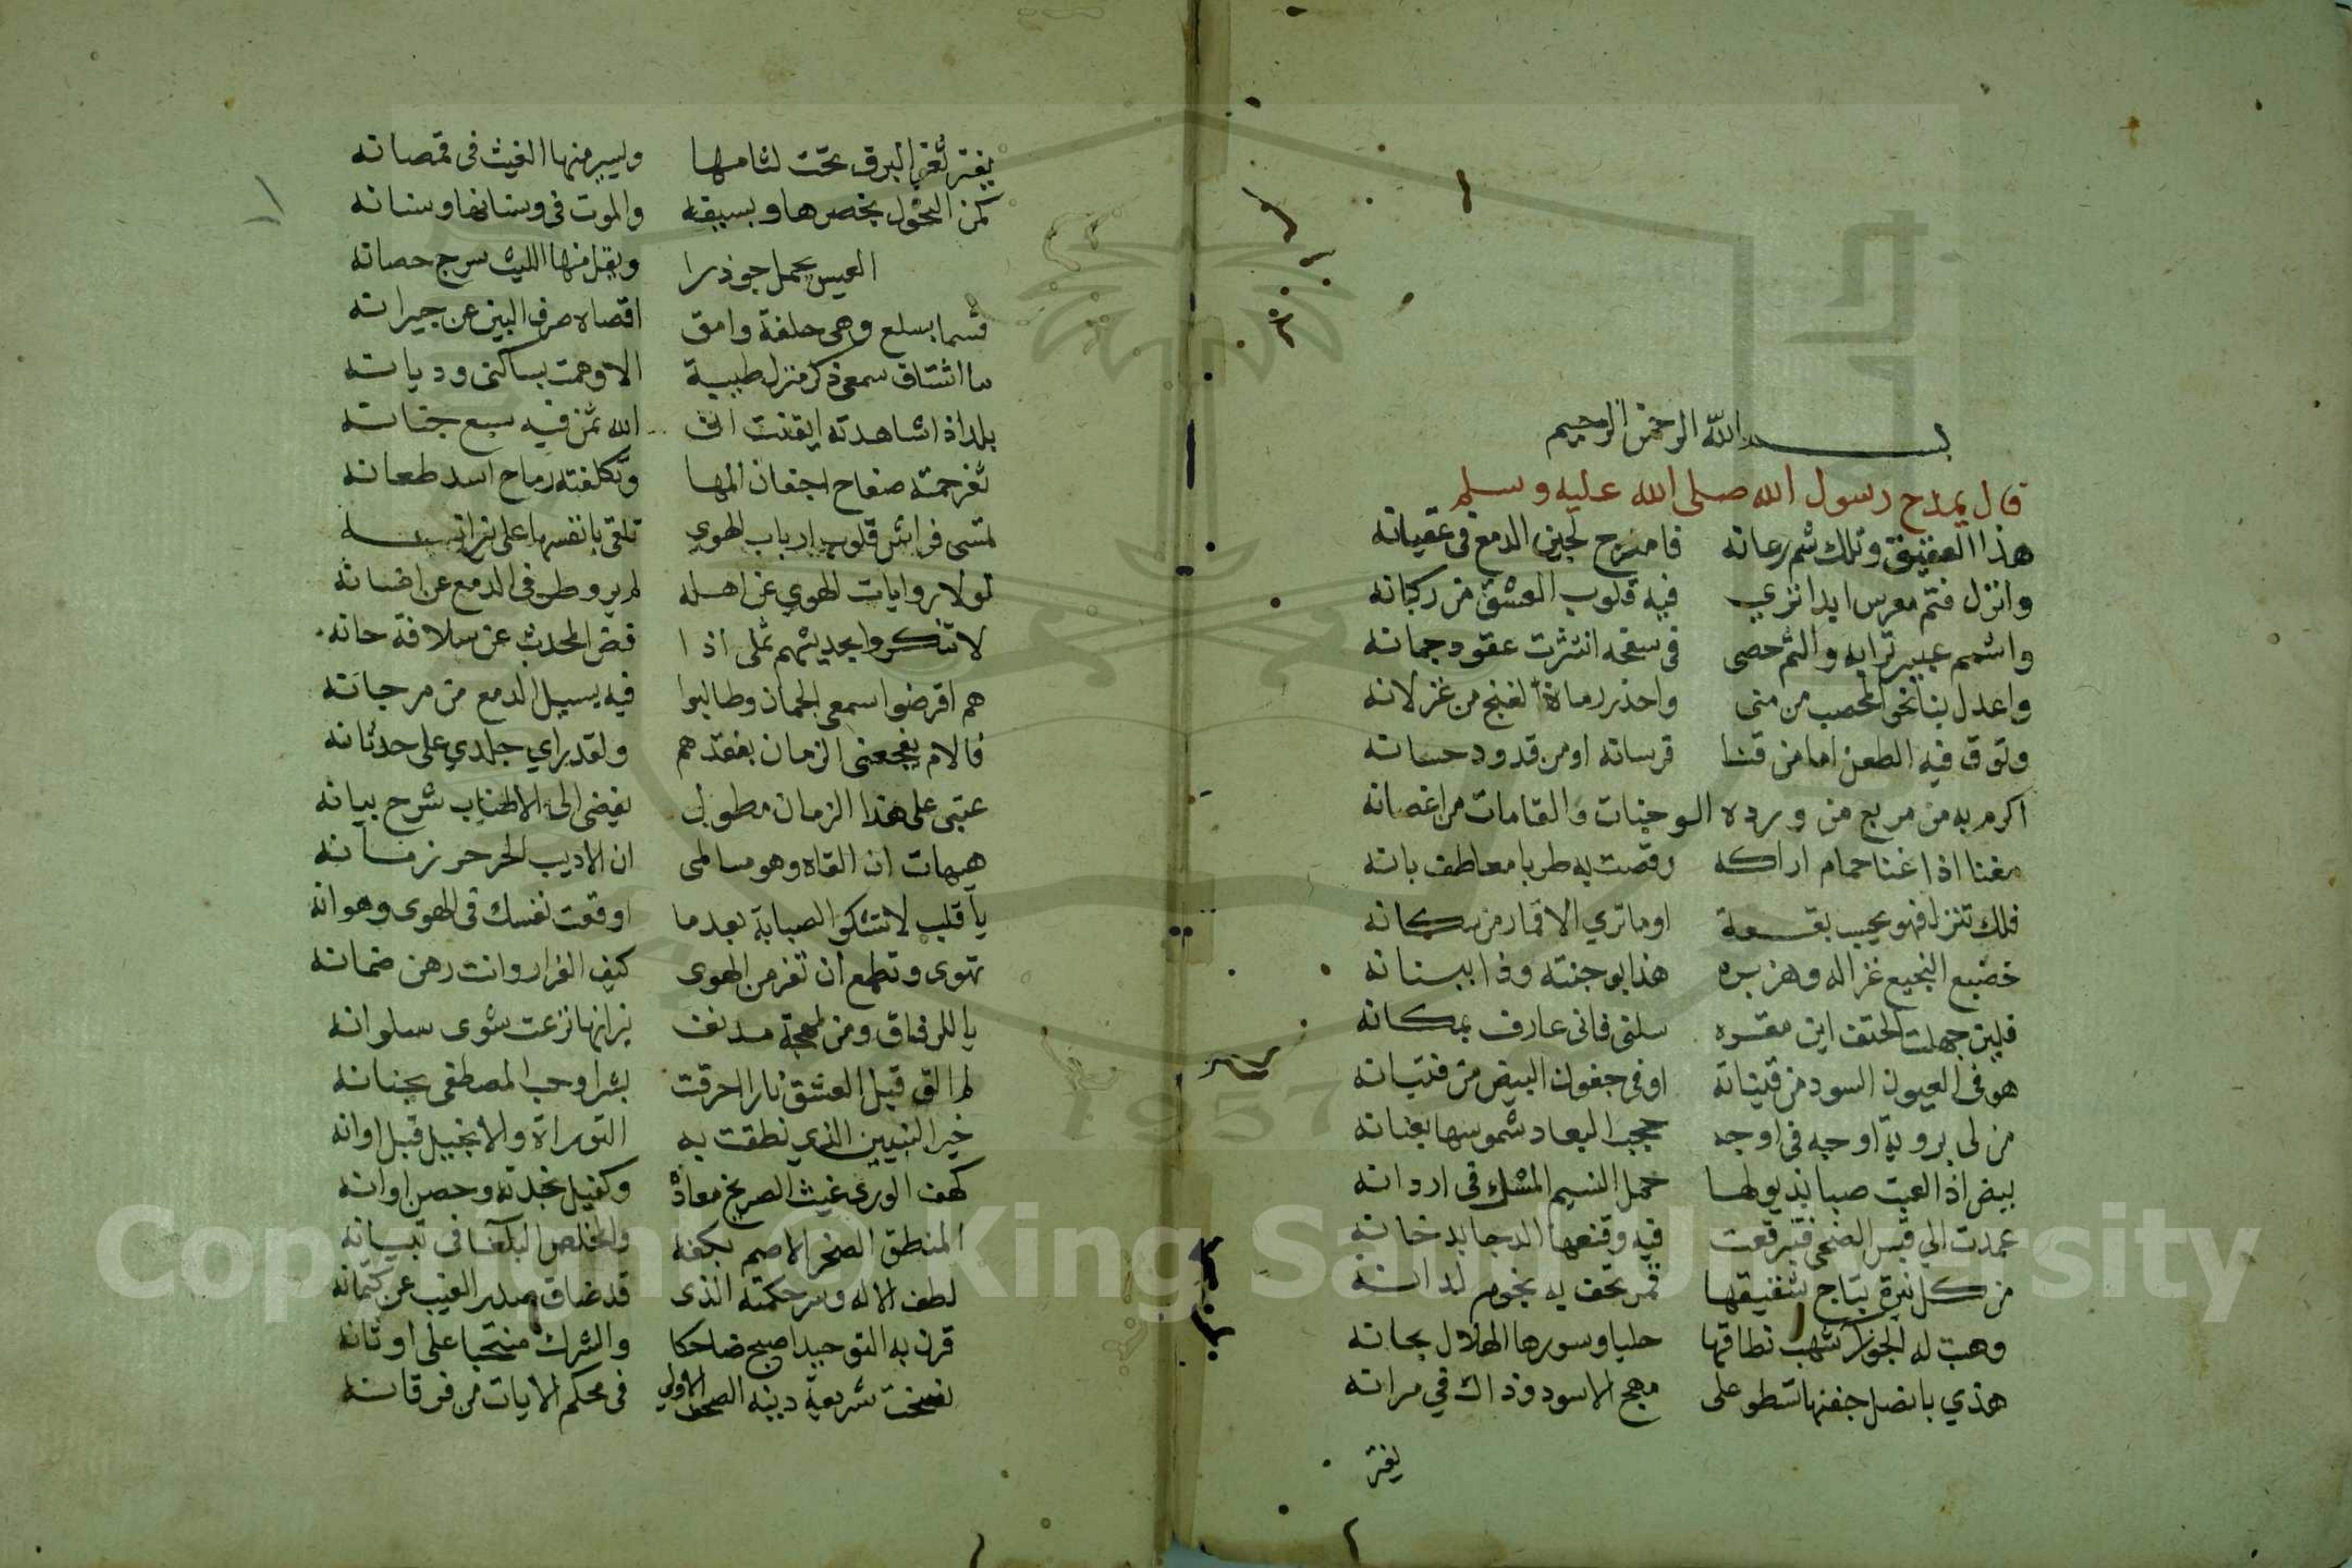 بسم الله الرحمن الرحيم
قال يمدح رسول الله صلى الله عليه وسلم
هذا العقيق وتلك شم رعانه فامزج لجين الدمع في عقيانه
وانزل فثم معرس ابدا تري فيه قلوب العشق من ركبانه
واشمم عبير ترابه والثم حصى في سفحه انتثرت عقود جمانه
واعدل بنا نحو المحصب من منى واحذر رماة الغنج من غزلانه
وتوق فيه الطعن اما من قنا فرسانه او من قدود حسانه
اكرم به من مربع من ورده الوجنات والقامات من اغصانه
مغنا اذا غنا حمام اراكه رقصت به طربا معاطف بانه
فلك تنزل فهو يحسب بقعة اوما تري الاقمار من سكانه
خضب النجيع غزاله وهزبره هذا بوجنته وذا ببنانه
فلين جهلت الحتف اين مقره سلني فاني عارف بمكانه
هو في العيون السود من قيناته او في جفون البيض من فتيانه
من لي بروية اوجه في اوجه حجب البعاد شموسها بعنانه
بيض اذا لعبت صبا بذيولها حمل النسيم المسك في اردانه
عمدت الي قبس الضحى فتبرقعت فيه وقنعها الدجا بدخانه
من كل نيرة بتاج شقيقها قمر تحف به نجوم لدانه
وهبت له الجوزا شهب نطاقها حليا وسورها الهلال بحانه
هذي بانصل جفنها تسطو على مهج الاسود وذاك في مرانه
يفتر
يفتر ثغر البرق تحت لثامها ويسير منها الغيث في قمصانه
كمن النحول بخصرها وبسيفه والموت في وسنانها وسنانه
العيس يحمل جوذرا ويقل منها الليث سرج حصانه
قسما بسلع وهي حلفة وامق اقصاه صرف البين عن جيرانه
ما اشتاق سمعي ذكر منزل طيبة الا وهمت بساكني وديانه
بلد اذا شاهدته ايقنت ان الله ثمن فيه سبع جنانه
ثغر حمته صفاح اجفان المها وتكلفته رماح اسد طعانه
تمسي فراش قلوب ارباب الهوي تلقي بانفسها على نيرانه
لولا روايات الهوي عن اهله لم يرو طرفي الدمع عن اخسانه
لا تنكروا بحديثهم ثملي اذا فض المحدث عن سلافة حانه
هم اقرضوا سمعي الجمان وطالبوا فيه يسيل الدمع من مرجانه
فالام يفجعني الزمان بفقدهم ولقد براي جلدي على حدثانه
عتبي على هذا الزمان مطول يفضي الى الاطناب شرح بيانه
هيهات ان القاه وهو مسالمي ان الاديب الحر حرب زمانه
يا قلب لا تشكو الصبابة بعد ما اوقعت نفسك في الهوى وهوانه
تهوى وتطمع ان تفر من الهوى كيف الفرار وانت رهن ضمانه
يا للرفاق ومن لمهجة مدنف نيرانها نزعت شوى سلوانه
لم الق قبل العشق نارا احرقت بشرا وحب المصطفى بجنانه
خير النبيين الذي نطقت به التوراة والانجيل قبل اوانه
كهف الورى غيث الصريخ معاذه وكفيل نجدته وحصن اوانه
المنطق الصخر الاصم بكفه والمخلص البلغا في تبيانه
لطف الاله وسر حكمته الذي قد ضاق صدر الغيب عن كتمانه
قرن به التوحيد اصبح ضاحكا والشرك منتحبا على اوثانه
نسخت شريعة دينه الصحف الاولي في محكم الايات من فرقانه
Copyright © King Saud University
1957